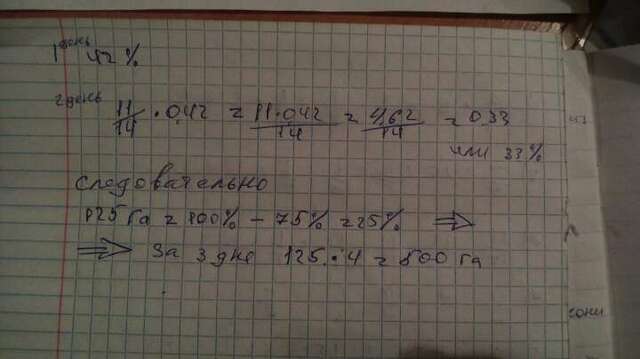 1 день 42%
2 день 11/14 · 0,42 = 11·042/14 = 4,62/14 = 0,33
или 33%
следовательно
125 га = 100% - 75% = 25% ⇒
⇒ За 3 дня 125·4 = 500 га